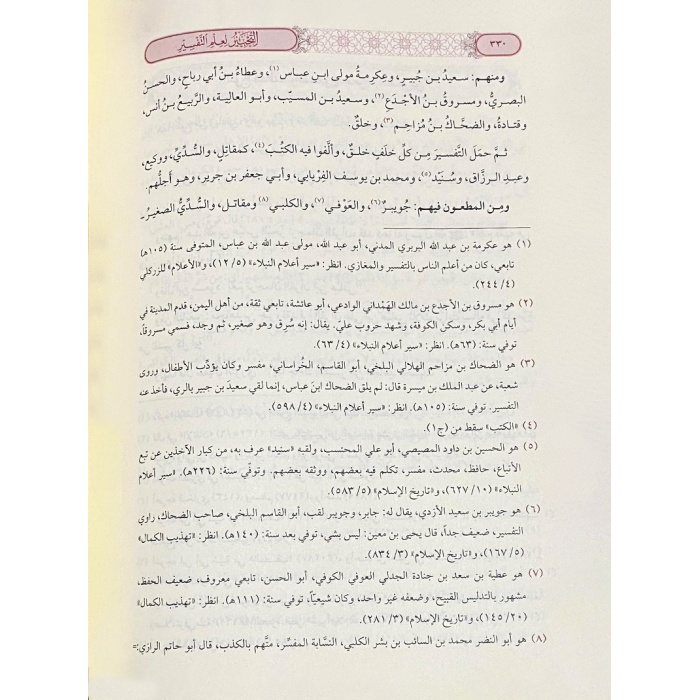 ٣٣٠
التَّحْبِيرُ لِعِلْمِ التَّفْسِيرِ
ومنهم: سعيدُ بن جُبيرٍ، وعِكرمةُ مولى ابنِ عباس(١)، وعطاءُ بنُ أبي رباح، والحسنُ
البصريُّ، ومسروقُ بنُ الأجْدَعِ(٢)، وسعيدُ بن المسيّب، وأبو العالية، والرَّبيعُ بنُ أنس،
وقتادةُ، والضحَّاكُ بنُ مُزاحِم(٣)، وخلقٌ.
ثمَّ حمَلَ التَّفسيرَ مِن كلِّ خلَفٍ خلقٌ، وألَّفوا فيه الكتُبَ(٤)، كمقاتِلٍ، والسُّدِّيِّ، ووكيع،
وعبدِ الرزَّاق، وسُنَيْد(٥)، ومحمد بن يوسف الفِريابي، وأبي جعفر بن جرير، وهو أجلُّهم.
ومِن المطعون فيهم: جُويبرٌ(٦)، والعَوْفي(٧)، والكلبي(٨) ومقاتل، والسُّدِّيُّ الصغيرُ.
(١) هو عكرمة بن عبد الله البربري المدني، أبو عبد الله، مولى عبد الله بن عباس، المتوفى سنة (١٠٥هـ)
تابعي، كان من أعلم الناس بالتفسير والمغازي. انظر: «سير أعلام النبلاء» (٥/ ١٢)، و«الأعلام» للزركلي
(٤/ ٢٤٤).
(٢) هو مسروق بن الأجدع بن مالك الهَمْداني الوادعي، أبو عائشة، تابعي ثقة، من أهل اليمن، قدم المدينة في
أيام أبي بكر، وسكن الكوفة، وشهد حروب عليّ. يقال: إنه سُرِق وهو صغير، ثم وجد، فسمي مسروقاً،
توفي سنة: (٦٣هـ). انظر: «سير أعلام النبلاء» (٤/ ٦٣).
(٣) هو الضحاك بن مزاحم الهلالي البلخي، أبو القاسم، الخُراساني، مفسر وكان يؤدِّب الأطفال، وروى
شعبة، عن عبد الملك بن ميسرة قال: لم يلق الضحاك ابنَ عباس، إنما لقي سعيدَ بن جبير بالري، فأخذ عنه
التفسير. توفي سنة: (١٠٥هـ). انظر: «سير أعلام النبلاء» (٤/ ٥٩٨).
(٤) «الكتب» سقط من (ج١).
(٥) هو الحسين بن داود المصيصي، أبو علي المحتسب، ولقبه «سنيد» عرف به، من كبار الآخذين عن تبع
الأتباع، حافظ، محدث، مفسر، تكلم فيه بعضهم، ووثقه بعضهم. وتوفّي سنة: (٢٢٦هـ). «سير أعلام
النبلاء» (١٠/ ٦٢٧)، و«تاريخ الإسلام» (٥/ ٥٨٣).
(٦) هو جويبر بن سعيد الأزدي، يقال له: جابر، وجويبر لقب، أبو القاسم البلخي، صاحب الضحاك، راوي
التفسير، ضعيف جداً، قال يحيى بن معين: ليس بشي، توفي بعد سنة: (١٤٠هـ). انظر: «تهذيب الكمال»
(٥/ ١٦٧)، و«تاريخ الإسلام» (٣/ ٨٣٤).
(٧) هو عطية بن سعد بن جنادة الجدلي العوفي الكوفي، أبو الحسن، تابعي معروف، ضعيف الحفظ،
مشهور بالتدليس القبيح، وضعفه غير واحد، وكان شيعيّاً، توفي سنة: (١١١هـ). انظر: «تهذيب الكمال»
(٢٠/ ١٤٥)، و«تاريخ الإسلام» (٣/ ٢٨١).
(٨) هو أبو النضر محمد بن السائب بن بشر الكلبي، النسَّابة المفسِّر، متَّهم بالكذب، قال أبو حاتم الرازي:=